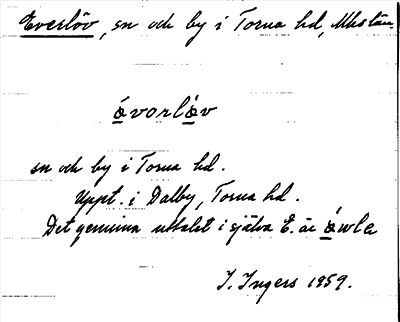 Everlöv, sn och by i Torna hd, Mhs län
ó̲vorlò̲v
sn och by i Torna hd.
Uppt. i Dalby, Torna hd.
Det genuina uttalet i själva E. är ó̲wla
I. Ingers 1959.